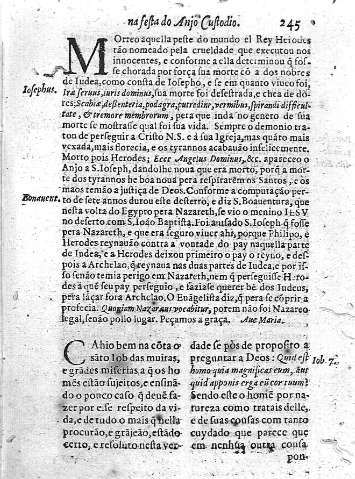 na festa do Anjo Custodio. 245
MOrreo aquella peste do mundo el Rey Herodes
tão nomeado pela crueldade que executou nos
innocentes, e conforme a ella determinou q̃ fos-
se chorada por força sua morte cõ a dos nobres
Iosephus.
de Iudea, como consta de Iosepho, e se em quanto viueo foi,
Ira seruus, iuris dominus, sua morte foi desestrada, e chea de do-
res; Scabia, desenteria, podagra, putredine, vermibus, spirandi difficul-
tate, & tremore membrorum, pera que inda no genero de sua
morte se mostrase qual foi sua vida. Sempre o demonio tra-
tou de perseguir a Cristo N.S. e á sua Igreja, mas quãto mais
vexada, mais florecia, e os tyrannos acabauão infelicemente.
Morto pois Herodes; Ecce Angelus Dominus, &c. apareceo o
Anjo a S. Ioseph, dandolhe noua que era morto, porq̃ a mor-
te dos tyrannos he boa noua pera respirarẽm os Santos, e os
maos temão a justiça de Deos. Conforme a computação per-
Bonauent.
to de sete annos durou este desterro, e diz S. Boauentura, que
nesta volta do Egypto pera Nazareth, se vio o menino IESV
no deserto com S. Ioão Baptista. Foi auisado S. Ioseph q̃ fosse
pera Nazareth, e que era seguro viuer ahi, porque Philipo, e
Herodes reynauão contra a vontade do pay naquella parte
de Iudea, e a Herodes deixou primeiro o pay o reyno, e des-
pois a Archelao, q̃ reynaua nas duas partes de Iudea, e por is-
so senão temia perigo em Nazareth, nem q̃ perseguisse Hero-
des à quẽ seu pay perseguio, e faziase querer bẽ dos Iudeus,
pera lãçar fora Archelao. O Euãgelista diz, q̃ pera se cõprir a
profecia. Quoniam Nazaræus vocabitur, porem não foi Nazareo
legal, senão pollo lugar. Peçamos a graça. Aue Maria.
CAhio bem na cõta o
sãto Iob das muitas,
e grãdes miserias a q̃ os ho
mẽs estão sujeitos, e ensinã-
do o pouco caso q̃ deuẽ fa-
zer por e se respeito da vi-
da, e de tudo o mais q̃ nella
procurão, e grãjeão, estãdo
certo, e resoluto nesta ver-
dade se pôs de proposito a
preguntar a Deos: Quid est
Iob 7.
homo quia magnificas eum, aut
quid apponis erga eũ cor tuum?
Sendo este o homẽ por na-
tureza como tratais delle,
e de suas cousas com tanto
cuydado que parece que
em nenhũa outra cousa
pon-